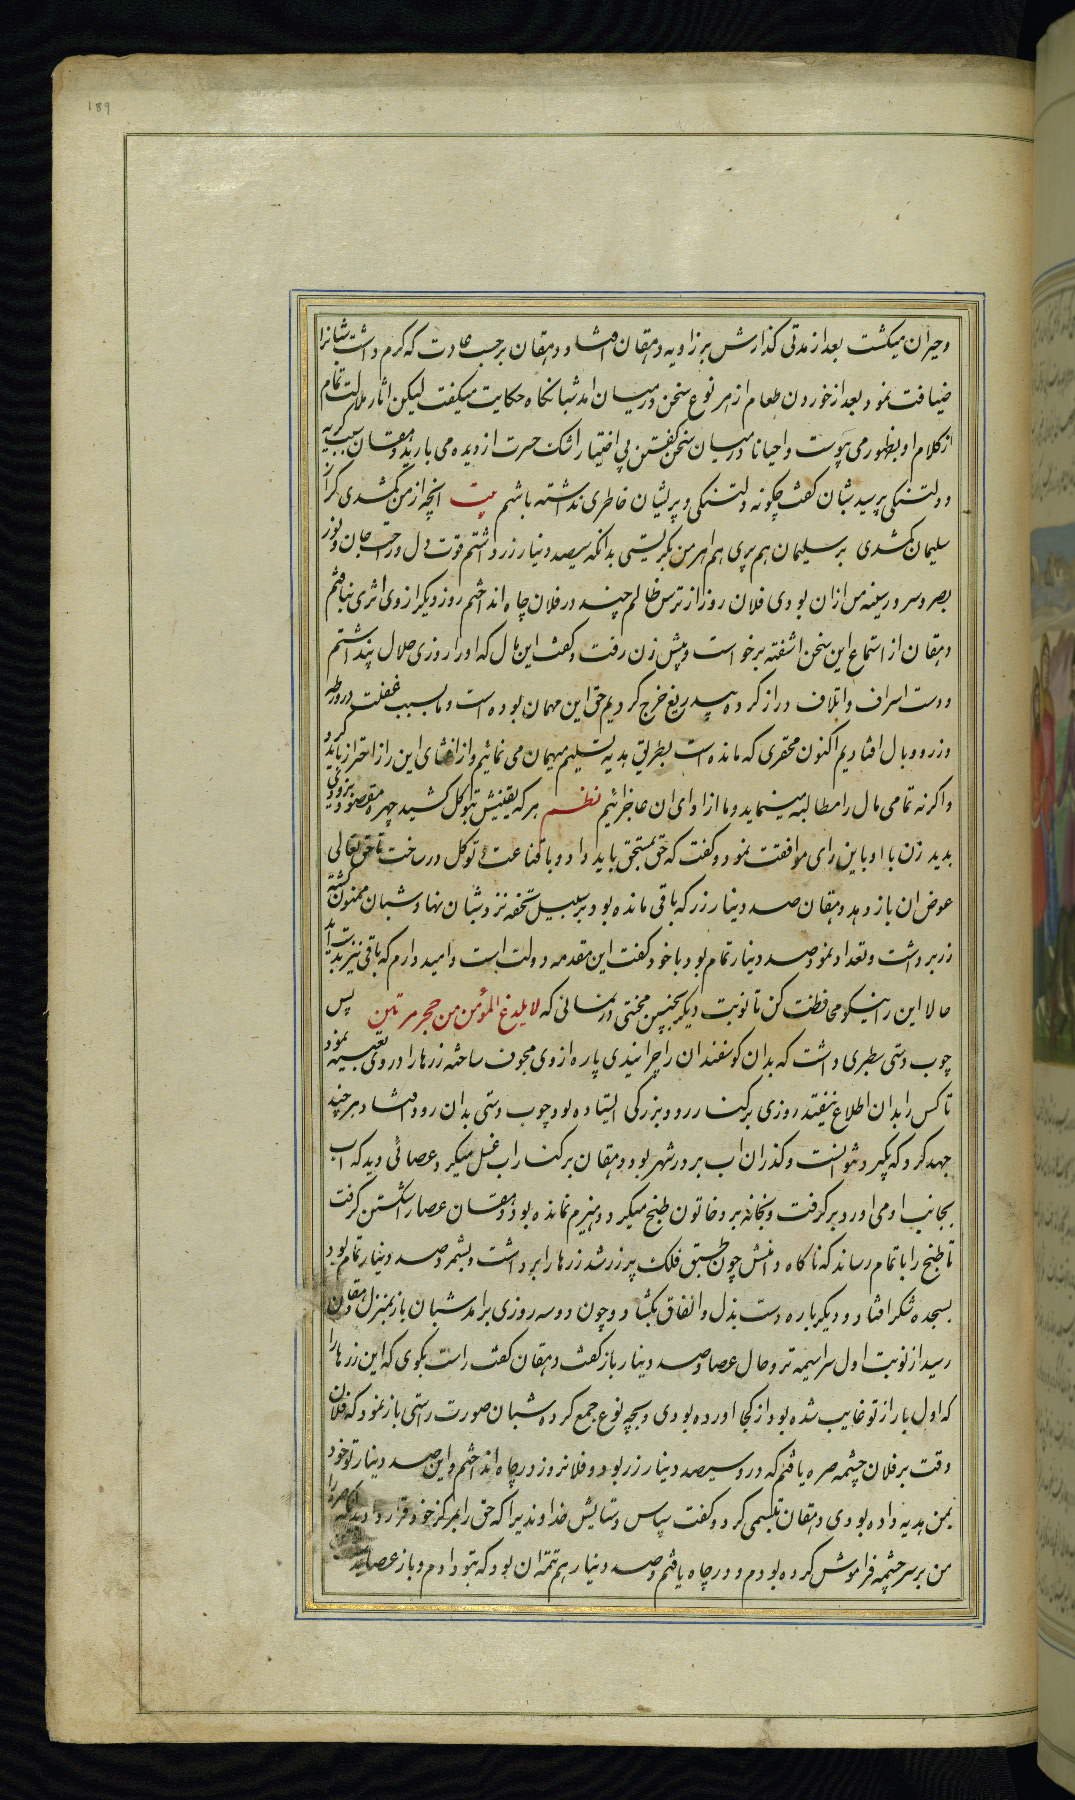 189
وحیران میکشت بعد از مدتی کذارش بر زاویه دهقان افتاد و دهقان برحسب عادت که کرم داشت شبانرا
ضیافت نمود و بعد از خوردن طعام از هر نوع سخن در میان امد شبانکاه حکایت میکفت لیکن اثار ملالت تمام
از کلام او بظهور می پیوست و احیانا در میان سخن کفتن بی اختیار اشک حسرت از دیده می بارید دهقان سبب کریه
و دلتنکی پرسید شبان کفت چکونه دلتنکی و پریشان خاطری نداشته باشم بیت انچه از من کم شدی کر از
سلیمان کم شدی بر سلیمان هم پری هم اهرمن بکریستی بدانکه سیصد دینار زر داشتم قوت دل و راحت جان و نور
بصر و سرور سینه من از ان بودی فلان روز از ترس ظالم چند در فلان چاه انداختم روز دیکر از وی اثری نیافتم
دهقان از استماع این سخن اشفته برخواست و پیش زن رفت و کفت این مال که اورا روزی حلال پنداشتم
و دست اسراف و اتلاف دراز کرده بیدریغ خرج کردیم حق این مهمان بوده است و ما بسبب غفلت در ورطه
وزر و وبال افتادیم اکنون محقری که مانده است بطریق هدیه تسلیم میهمان می نمائیم و از افشای این راز احتراز باید کرد
و اکرنه تمامی مال را مطالبه مینماید و ما از ادای ان عاجزائیم نظم هر که یقینش بتوکل کشید چهره مقصود بزودی
بدید زن با او باین رای موافقت نمود و کفت که حق بمستحق باید داد و با قناعت و توکل در ساخت تا حق تعالی
عوض ان باز دهد دهقان صد دینار زر که باقی مانده بود بر سبیل تحفه نزد شبان نهاد شبان ممنون کشته
زر برداشت و تعداد نمود صد دینار تمام بود با خود کفت این مقدمه دولت است و امیدوارم که باقی نیز بدست اید
حالا این را نیکو محافظت کن تا نوبت دیکر بچنین محنتی در نمانی که لا یلدغ المؤمن من جحر مرتین پس
چوب دستی سطبری داشت که بدان کوسفندان را چرانیدی پاره از وی مجوف ساخته زرها را در وی تعبیه نمود
تا کس را بدان اطلاع نیفتد روزی بر کنار رود بزرکی ایستاده بود چوب دستی بدان رود افتاد هر چند
جهد کرد که بکیرد نتوانست و کذر ان اب بر در شهر بود دهقان بر کنار اب غسل میکرد عصائی دید که اب
بجانب او می اورد بر کرفت و بخانه برد خاتون طبخ میکرد و هیزم نمانده بود دهقان عصا را شکستن کرفت
تا طبخ را باتمام رساند که ناکاه دامنش چون طبق فلک پر زر شد زرها را برداشت و بشمرد صد دینار تمام بود
بسجده شکر افتاد و دیکر باره دست بذل و انفاق بکشاد و چون دو سه روزی برامد شبان باز بمنزل دهقان
رسید از نوبت اول سراسیمه تر و حال عصا و صد دینار باز کفت دهقان کفت راست بکوی که این زرها را
که اول بار از تو غایب شده بود از کجا اورده بودی و بچه نوع جمع کرده شبان صورت راستی باز نمود که فلان
وقت بر فلان چشمه صره یافتم که درو سیصد دینار زر بود و فلانروز در چاه انداختم و این صد دینار تو خود
بمن هدیه داده بودی دهقان تبسمی کرد و کفت سپاس و ستایش خداوندیرا که حق را بمرکز خود قرار داد بدانکه صره را
من بر سر چشمه فراموش کرده بودم و در چاه یافتم و صد دینار هم تتمه ان بود که بتو دادم و باز عصا